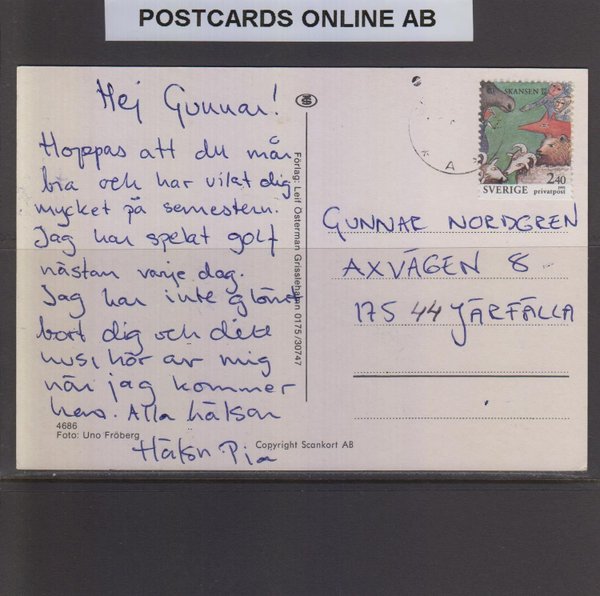 POSTCARDS ONLINE AB
Hej Gunnar!
Hoppas att du mår
bra och har vilat dig
mycket på semestern.
Jag har spelat golf
nästan varje dag.
Jag har inte glömt
bort dig och ditt
hus, hör av mig
när jag kommer
hem. Alla hälsar
Hälsn Pia
4686
Foto: Uno Fröberg
Copyright Scankort AB
Förlag: Leif Österman Grisslehamn 0175/30747
SKANSEN
2.40
SVERIGE privatpost
GUNNAR NORDGREN
AXVÄGEN 8
175 44 JÄRFÄLLA